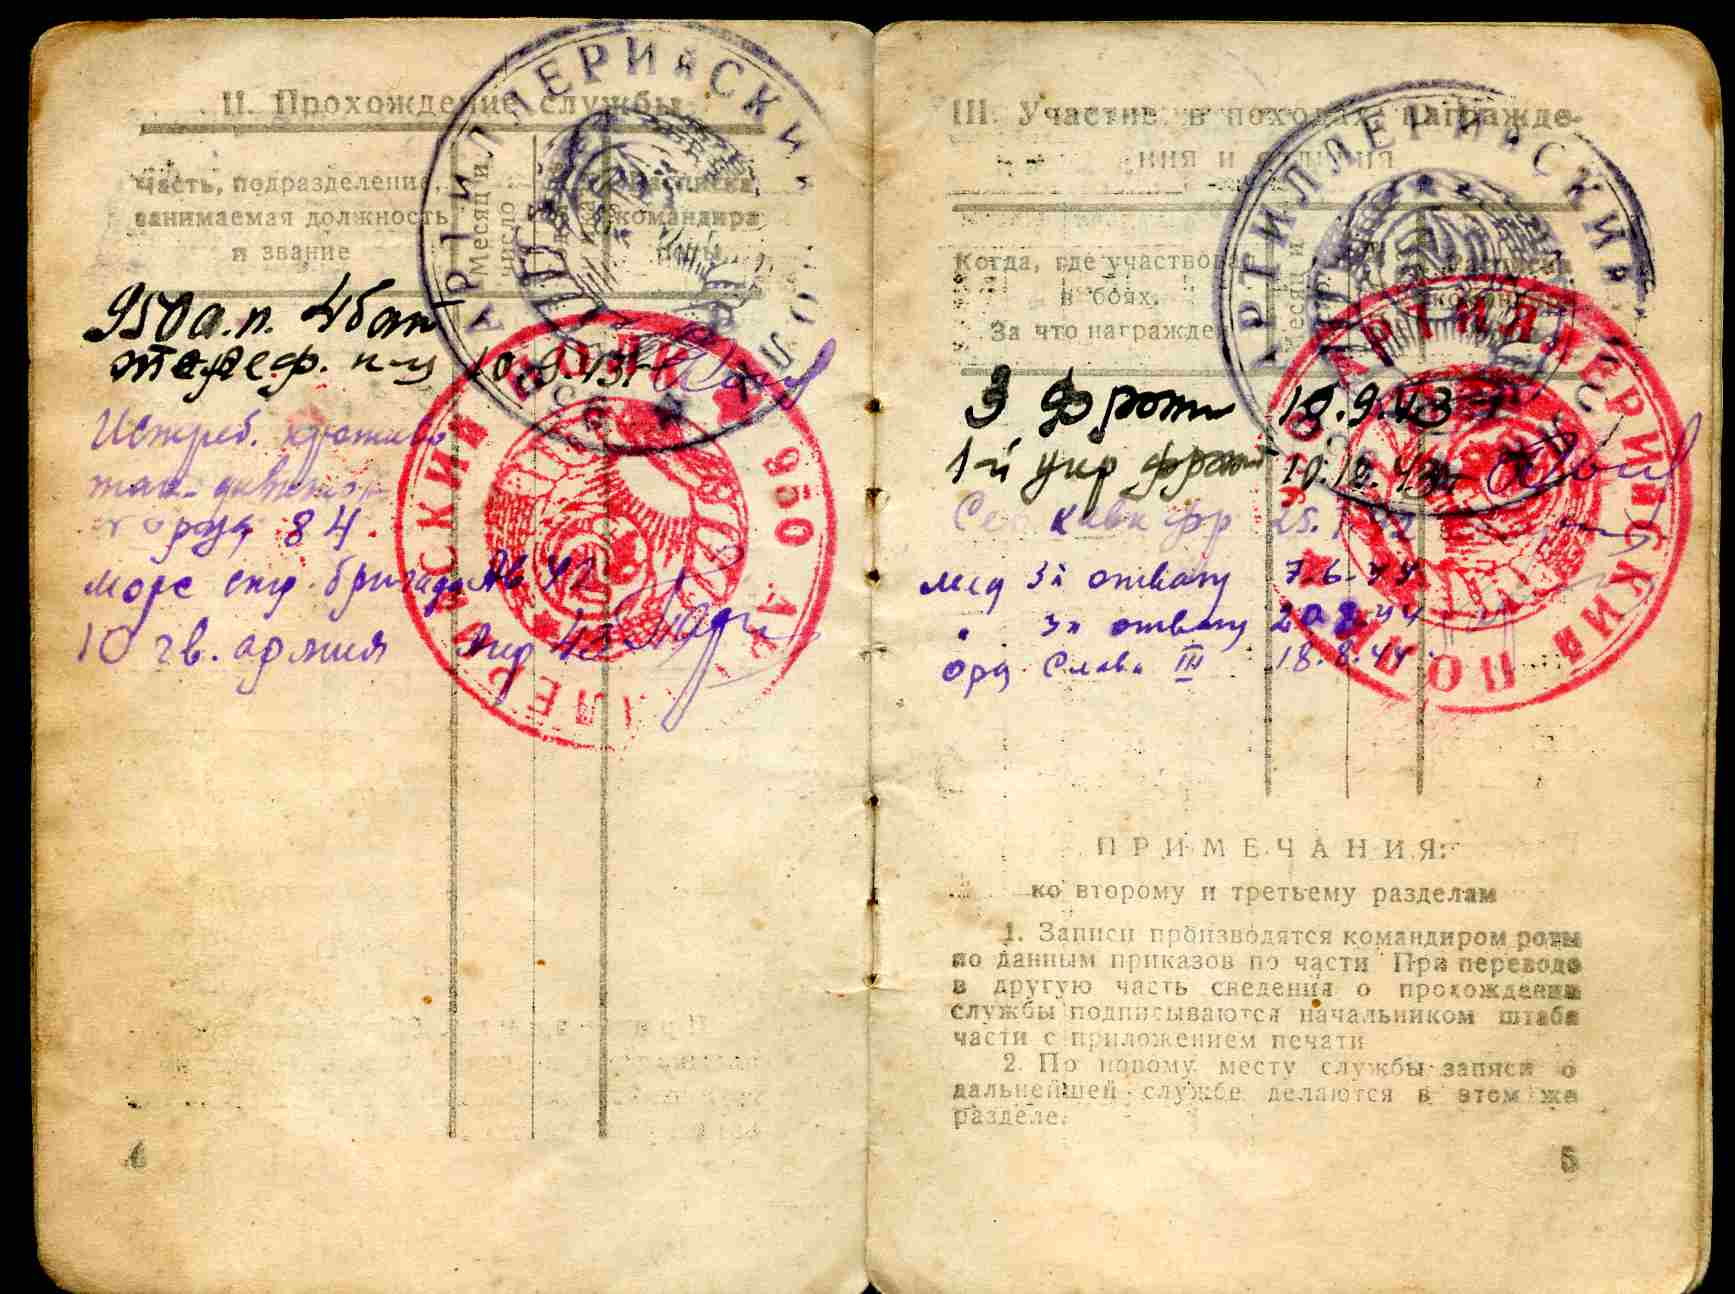 II. Прохождение службы
Часть, подразделение,
занимаемая должность
и звание
Месяц и
число
командира
950 а.п. 4 бат
телеф. п-ц 10.9.43г
Истреб. противо
тан. дивизион
84
морс стр. бригада Ав 42
10 гв. армия 43
АРТИЛЛЕРИЙСКИЙ
950
4
III. Участие в походах, награжде-
ния и отличия
Когда, где участвовал
в боях.
За что награжден
Месяц и
3 Фронт 10.9.43г
1-й укр фронт 10.12.43г
Сев Кавк фр 25.
мед за отвагу 7.6.44
" за отвагу 20.8.44
орд Слава III 18.8.44
АРТИЛЛЕРИЙСКИЙ
АРТИЛЛЕРИЙСКИЙ ПОЛК
ПРИМЕЧАНИЯ:
ко второму и третьему разделам
1. Записи производятся командиром роты
по данным приказов по части При переводе
в другую часть сведения о прохождении
службы подписываются начальником штаба
части с приложением печати
2. По новому месту службы записи о
дальнейшей службе делаются в этом же
разделе.
5